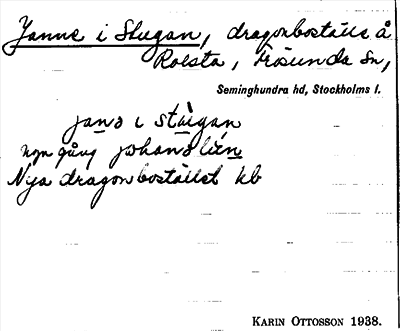 Janne i Stugan, dragonboställe å
Rolsta, Frösunda sn,
Seminghundra hd, Stockholms l.
janə i stùgan
nyn gång johan lién
Nya dragonbostället kb
KARIN OTTOSSON 1938.